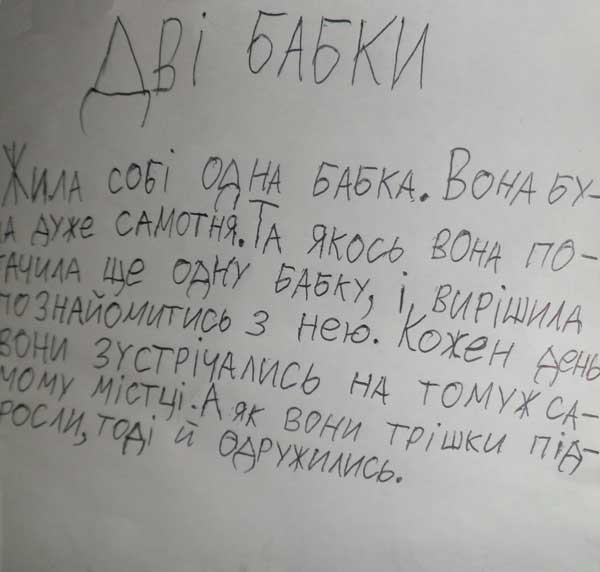 ДВІ БАБКИ
ЖИЛА СОБІ ОДНА БАБКА. ВОНА БУ-
ЛА ДУЖЕ САМОТНЯ. ТА ЯКОСЬ ВОНА ПО-
БАЧИЛА ЩЕ ОДНУ БАБКУ, І ВИРІШИЛА
ПОЗНАЙОМИТИСЬ З НЕЮ. КОЖЕН ДЕНЬ
ВОНИ ЗУСТРІЧАЛИСЬ НА ТОМУЖ СА-
МОМУ МІСТЦІ. А ЯК ВОНИ ТРІШКИ ПІД-
РОСЛИ, ТОДІ Й ОДРУЖИЛИСЬ.